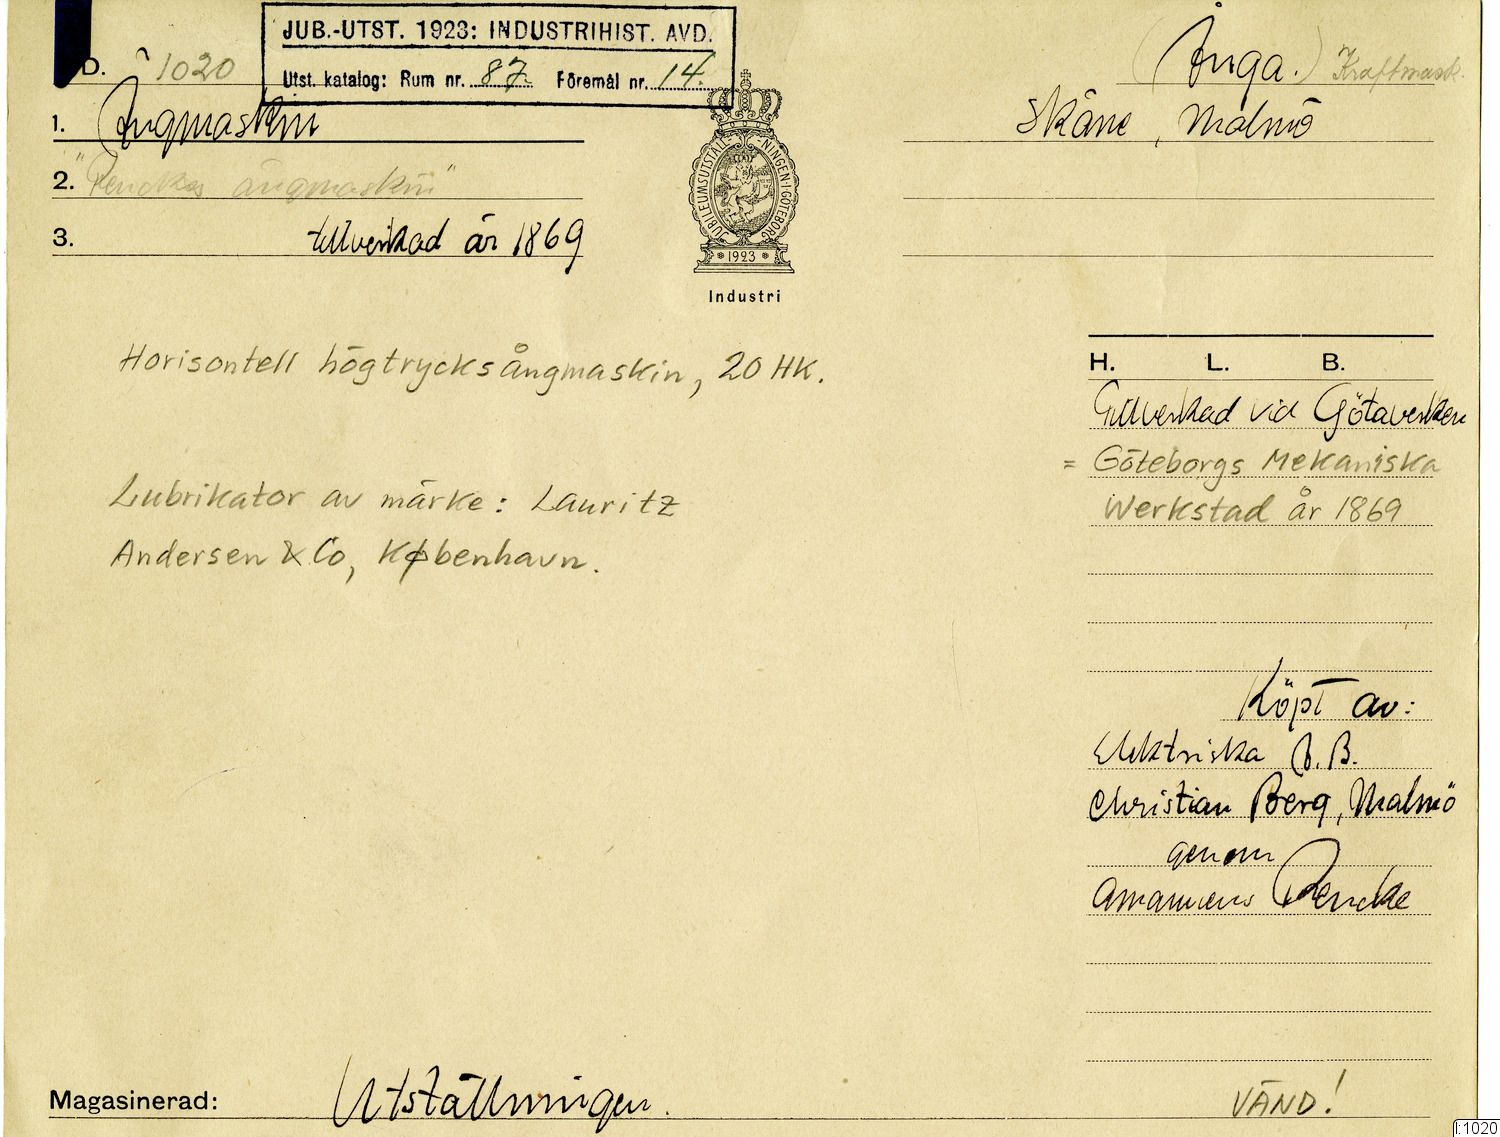 JUB.-UTST. 1923: INDUSTRIHIST. AVD.
Utst. katalog: Rum nr. 87. Föremål nr. 14.
D. 1020
(Ånga.) Kraftmask.
1. Ångmaskin
Skåne, Malmö
2. "Renckes ångmaskin"
3. tillverkad år 1869
JUBILEUMSUTSTÄLLNINGEN·I·GÖTEBORG
1923
Industri
Horisontell högtrycksångmaskin, 20 HK.
H. L. B.
Tillverkad vid Götaverken
= Göteborgs Mekaniska
Werkstad år 1869
Lubrikator av märke: Lauritz
Andersen & Co, København.
Köpt av:
Elektriska A.B.
Christian Berg, Malmö
genom
Amanuens Rencke
Magasinerad: Utställningen.
VÄND!
I:1020